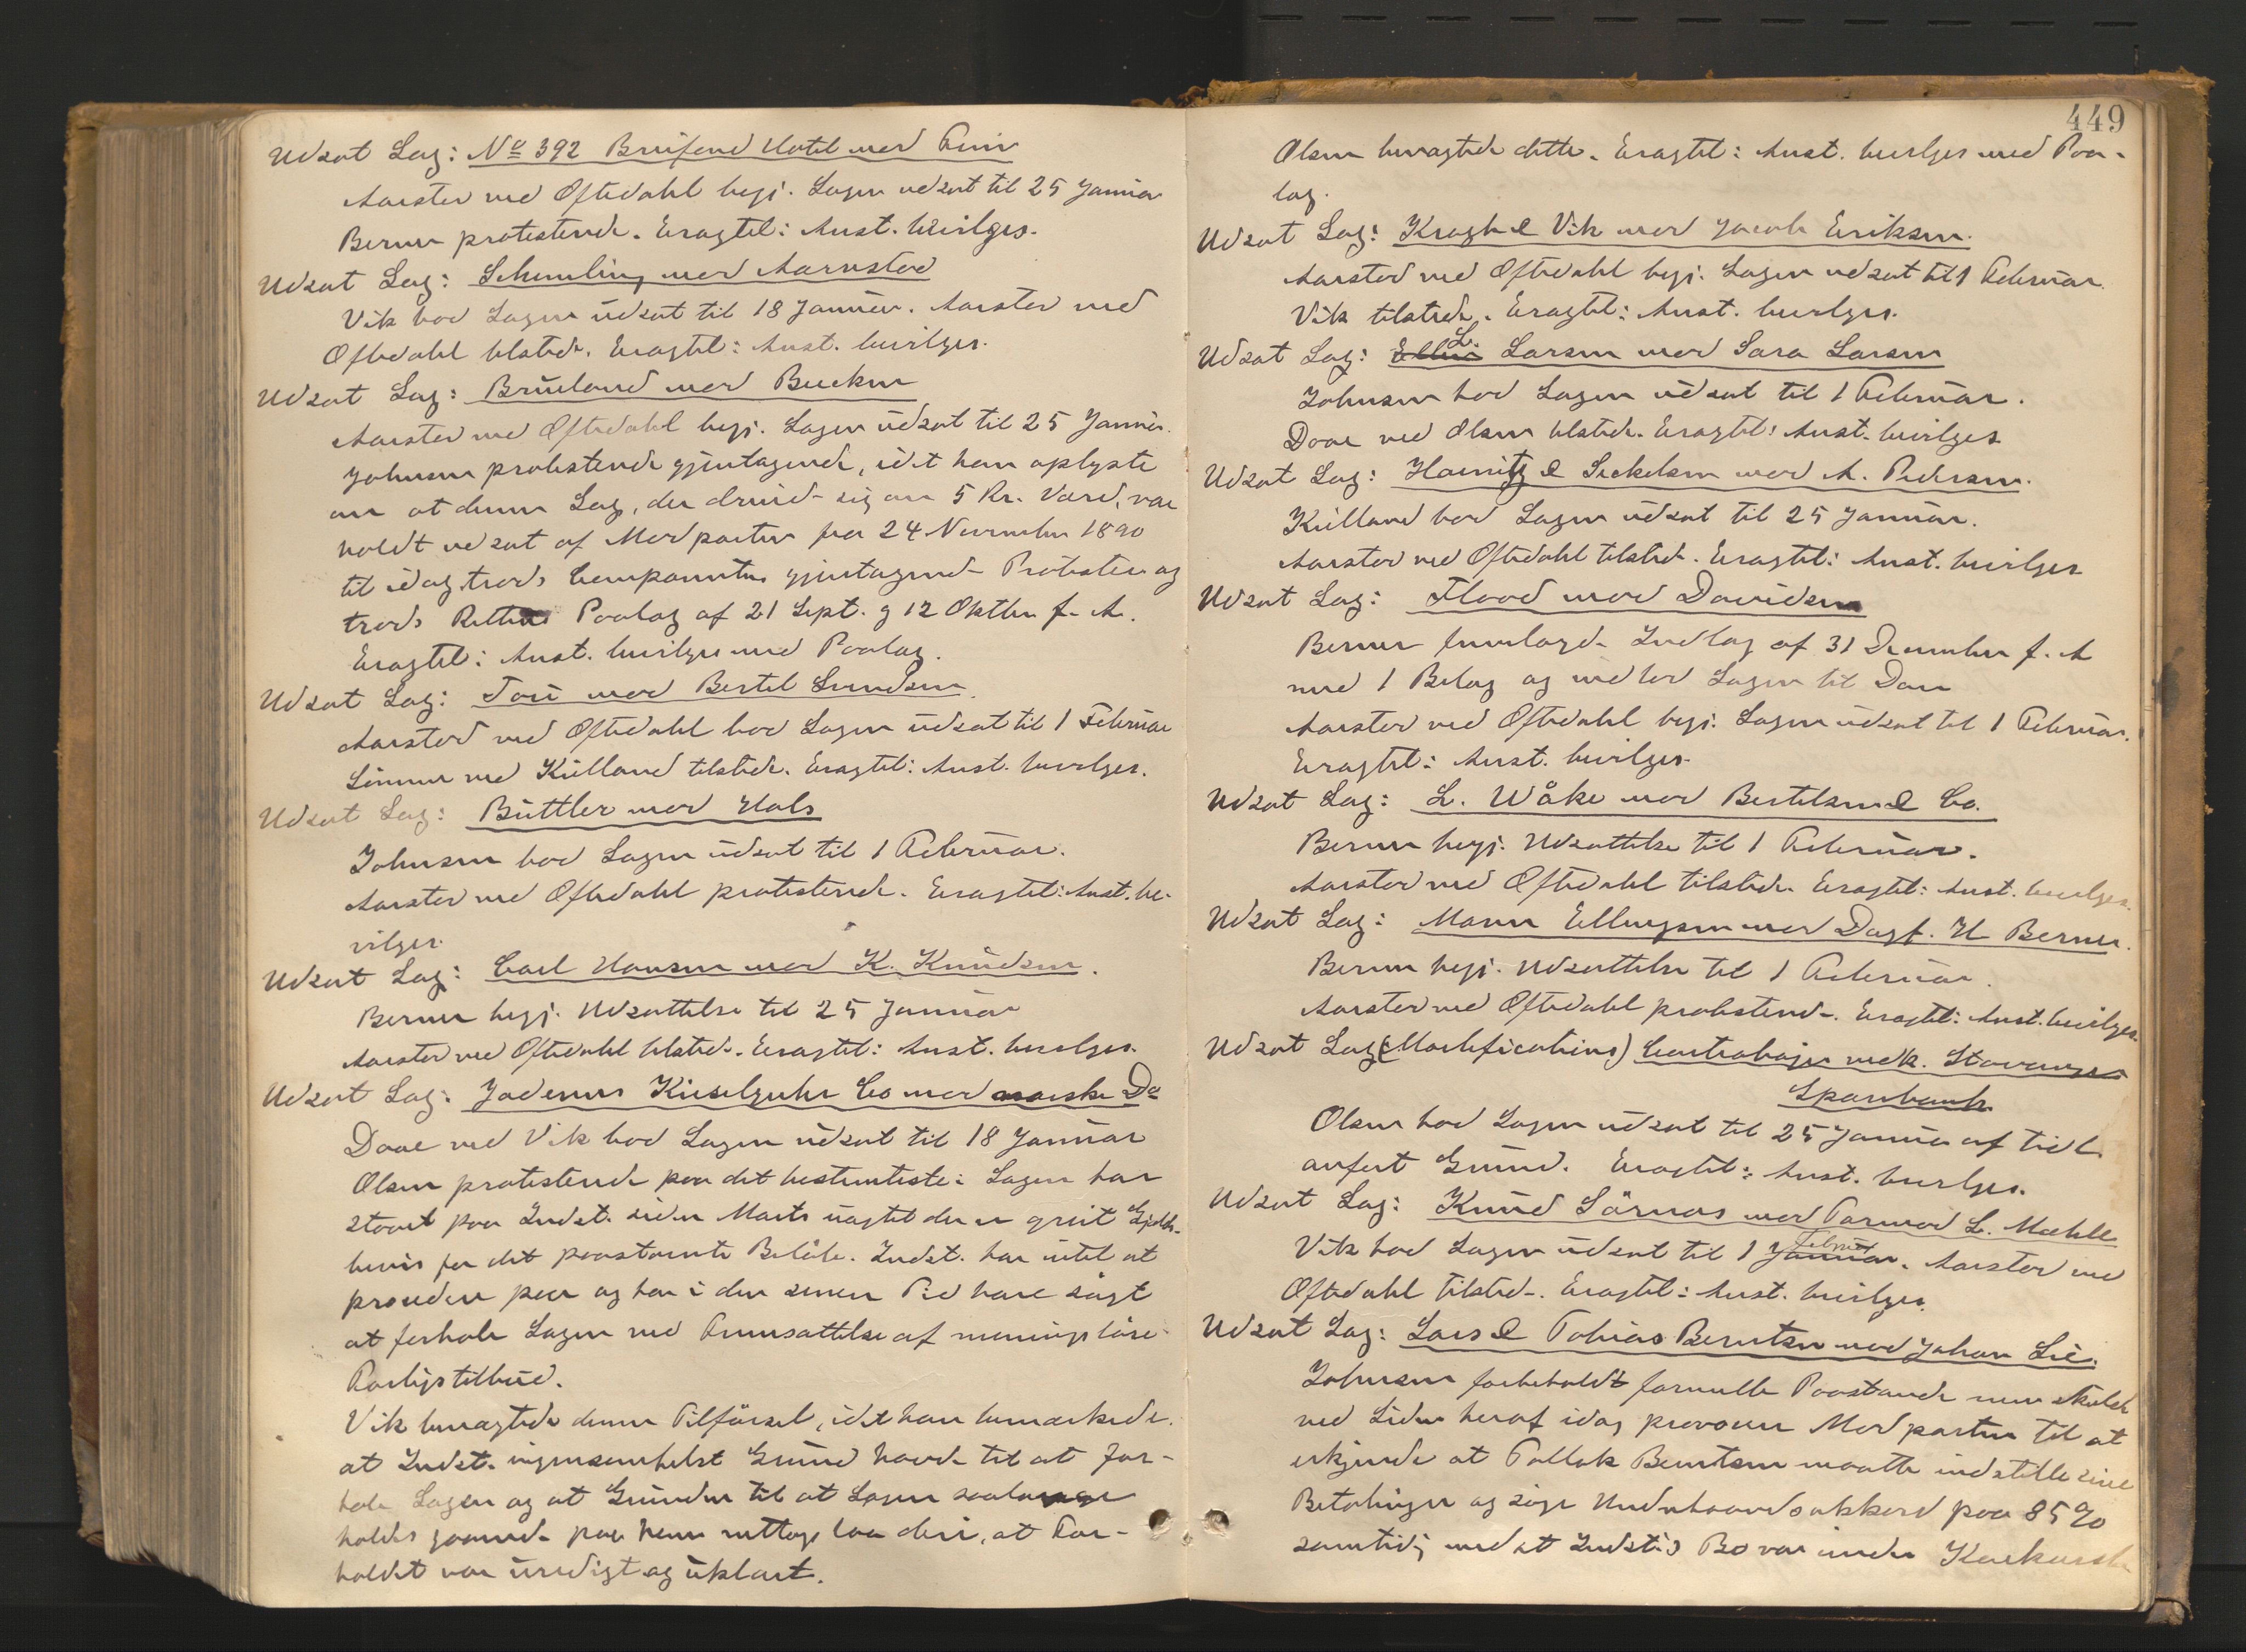 Udsat Sag: No 392 Hotel mod
Aarstad ved Oftedahl begj. Sagen udsat til 25 Januar
Berner protesterede. Eragtet: Anst. bevilges.
Udsat Sag: Schmeling mod Aarrestad
Vik bad Sagen udsat til 18 Januar. Aarstad ved
Oftedahl tilstede. Eragtet: Anst. bevilges.
Udsat Sag: Brueland mod
Aarstad ved Oftedahl begj. Sagen udsat til 25 Januar.
Johnsen protesterede gjentagende, idet han oplyste
om at denne Sag, der dreied sig om 5 Kr. Værd, var
holdt udsat af Modparten fra 24 November 1890
til idag trods Comparentens gjentagende Protester og
trods Rettens Paalæg af 21 Sept. og 12 Oktbr f. A.
Eragtet: Anst. bevilges med Paalæg.
Udsat Sag: Tou mod Bertel Svendsen
Aarstad ved Oftedahl bad Sagen udsat til 1 Februar
Sömme ved Kielland tilstede. Eragtet: Anst. bevilges.
Udsat Sag: Büttler mod Hals
Johnsen bad Sagen udsat til 1 Februar.
Aarstad ved Oftedahl protesterede. Eragtet: Anst. be-
vilges.
Udsat Sag: Carl Hansen mod K. Knudsen.
Berner begj. Udsættelse til 25 Januar
Aarstad ved Oftedahl tilstede. Eragtet: Anst. bevilges.
Udsat Sag: Jæderens Kieselguhr Co mod norske Do
Daae ved Vik bad Sagen udsat til 18 Januar
Olsen protesterede paa det bestemteste: Sagen har
staaet paa Indst. siden Marts uagtet der er Gjælds-
bevis for det paastævnte Beløb. Indst. har intet at
procedere paa og har i den senere Tid bare søgt
at forhale Sagen ved Fremsættelse af meningsløse
Forligstilbud.
Vik benægtede denne Tilførsel, idet han bemærkede
at Indst. ingensomhelst Grund havde til at for-
hale Sagen og at Grunden til at Sagen saalænge
holdes gaaende paa laa deri, at For-
holdet var uredigt og uklart.
449
Olsen benægtede dette. Eragtet: Anst. bevilges med Paa-
læg.
Udsat Sag: Kragh & Vik mod Jacob Eriksen.
Aarstad ved Oftedahl begj. Sagen udsat til 1 Februar.
Vik tilstede. Eragtet: Anst. bevilges.
Udsat Sag: L. Larsen mod Sara Larsen
Johnsen bad Sagen udsat til 1 Februar.
Daae ved Olsen tilstede. Eragtet: Anst. bevilges
Udsat Sag: & Sickelsen mod A. Pedersen.
Kielland bad Sagen udsat til 25 Januar.
Aarstad ved Oftedahl tilstede. Eragtet: Anst. bevilges
Udsat Sag: Flood mod Davidsen
Berner fremlagde Indlæg af 31 December f. A
med 1 Bilag og indlod Sagen til Dom
Aarstad ved Oftedahl begj. Sagen udsat til 1 Februar.
Eragtet: Anst. bevilges.
Udsat Sag: L. Wåke mod Bertelsen & Co.
Berner begj. Udsættelse til 1 Februar.
Aarstad ved Oftedahl tilstede. Eragtet: Anst. bevilges.
Udsat Sag: Ellingsen mod Dagf. H Berner.
Berner begj. Udsættelse til 1 Februar.
Aarstad ved Oftedahl protesterede. Eragtet: Anst. bevilges.
Udsat Sag (Mortifications) Contrabøger vedk. Stavanger
Sparebank
Olsen bad Sagen udsat til 25 Januar af tidl.
anført Grund. Eragtet: Anst. bevilges.
Udsat Sag: Knud Sörnes mod Tormod L. Mæhle
Vik bad Sagen udsat til 1 Januar Februar. Aarstad ved
Oftedahl tilstede. Eragtet: Anst. bevilges.
Udsat Sag: Lars & Tobias Berntsen mod Johan Lie.
Johnsen forbeholdt formelle Paastande men skulde
ved Siden heraf idag provocere Modparten til at
erkjende at Tollak Berntsen maatte indstille sine
Betalinger og søge Underhaandsakkord paa 85 %
samtidig med at Indst.s Bo var under Konkurs